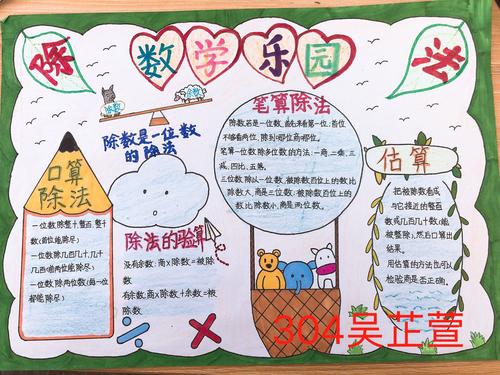 除
数学乐园
法
余数
除数
除数是一位数
的除法
口算
除法
一位数除整十、整百、整十
数(首位能除尽)
一位数除几百几十、几十
几百(前两位能除尽)
一位数除两位数(每一位
都能除尽)
除法的验算
没有余数:商×除数=被除
数
有余数:商×除数+余数=被
除数
笔算除法
除数若是一位数,首先来看第一位;首位
不够看两位,除到哪位商哪位。
笔算一位数除多位数的方法:一商、二乘、三
减、四比、五落。
三位数除以一位数,被除数百位上的数比
除数大,商是三位数;被除数百位上的
数比除数小,商是两位数。
估算
把被除数看成
与它接近的整百
数或几百几十数(能
被整除),然后口算出
结果。
用估算的方法也可以
检验商是否正确。
304吴芷萱